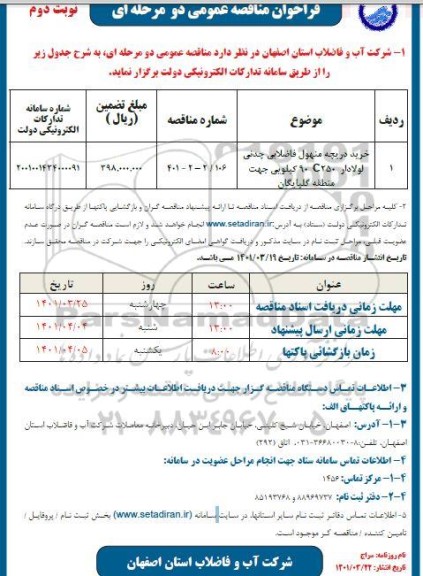 فراخوان مناقصه عمومی دو مرحله ای
نوبت دوم
۱- شرکت آب و فاضلاب استان اصفهان در نظر دارد مناقصه عمومی دو مرحله ای، به شرح جدول زیر
را از طریق سامانه تدارکات الکترونیکی دولت برگزار نماید.
ردیف موضوع شماره مناقصه مبلغ تضمین (ریال) شماره سامانه تدارکات الکترونیکی دولت
۱ خرید دریچه منهول فاضلابی چدنی لولادار C۲۵۰ ۹۰ کیلویی جهت منطقه گلپایگان ۱۰۶ / ۲ - ۲ - ۴۰۱ ۳۹۸,۰۰۰,۰۰۰ ۲۰۰۱۰۰۱۴۳۴۰۰۰۰۹۱
۲- کلیه مراحل برگزاری مناقصه از دریافت اسناد مناقصه تا ارائه پیشنهاد مناقصه گران و بازگشایی پاکتها از طریق درگاه سامانه
تدارکات الکترونیکی دولت (ستاد) به آدرس www.setadiran.ir انجام خواهد شد و لازم است مناقصه گران در صورت عدم
عضویت قبلی، مراحل ثبت نام در سایت مذکور و دریافت گواهی امضای الکترونیکی را جهت شرکت در مناقصه محقق سازند.
تاریخ انتشار مناقصه در سامانه: تاریخ ۱۴۰۱/۰۳/۱۹ می باشد.
عنوان ساعت روز تاریخ
مهلت زمانی دریافت اسناد مناقصه ۱۳:۰۰ چهارشنبه ۱۴۰۱/۰۳/۲۵
مهلت زمانی ارسال پیشنهاد ۱۳:۰۰ شنبه ۱۴۰۱/۰۴/۰۴
زمان بازگشائی پاکتها ۸:۰۰ یکشنبه ۱۴۰۱/۰۴/۰۵
۳- اطلاعات تماس دستگاه مناقصه گزار جهت دریافت اطلاعات بیشتر در خصوص اسناد مناقصه
و ارائه پاکتهای الف:
۳-۱- آدرس: اصفهان، خیابان شیخ کلینی، خیابان جابر ابن حیان، دبیرخانه معاملات شرکت آب و فاضلاب استان
اصفهان، تلفن: ۸-۳۶۶۸۰۰۳۰-۰۳۱، اتاق (۲۹۲)
۴- اطلاعات تماس سامانه ستاد جهت انجام مراحل عضویت در سامانه:
۴-۱- مرکز تماس: ۱۴۵۶
۴-۲- دفتر ثبت نام: ۸۸۹۶۹۷۳۷ و ۸۵۱۹۳۷۶۸
۵- اطلاعات تماس دفاتر ثبت نام سایر استانها، در سایت سامانه (www.setadiran.ir) بخش ثبت نام / پروفایل /
تامین کننده / مناقصه گر موجود است.
نام روزنامه: سراج
تاریخ انتشار: ۱۴۰۱/۰۳/۲۲
شرکت آب و فاضلاب استان اصفهان